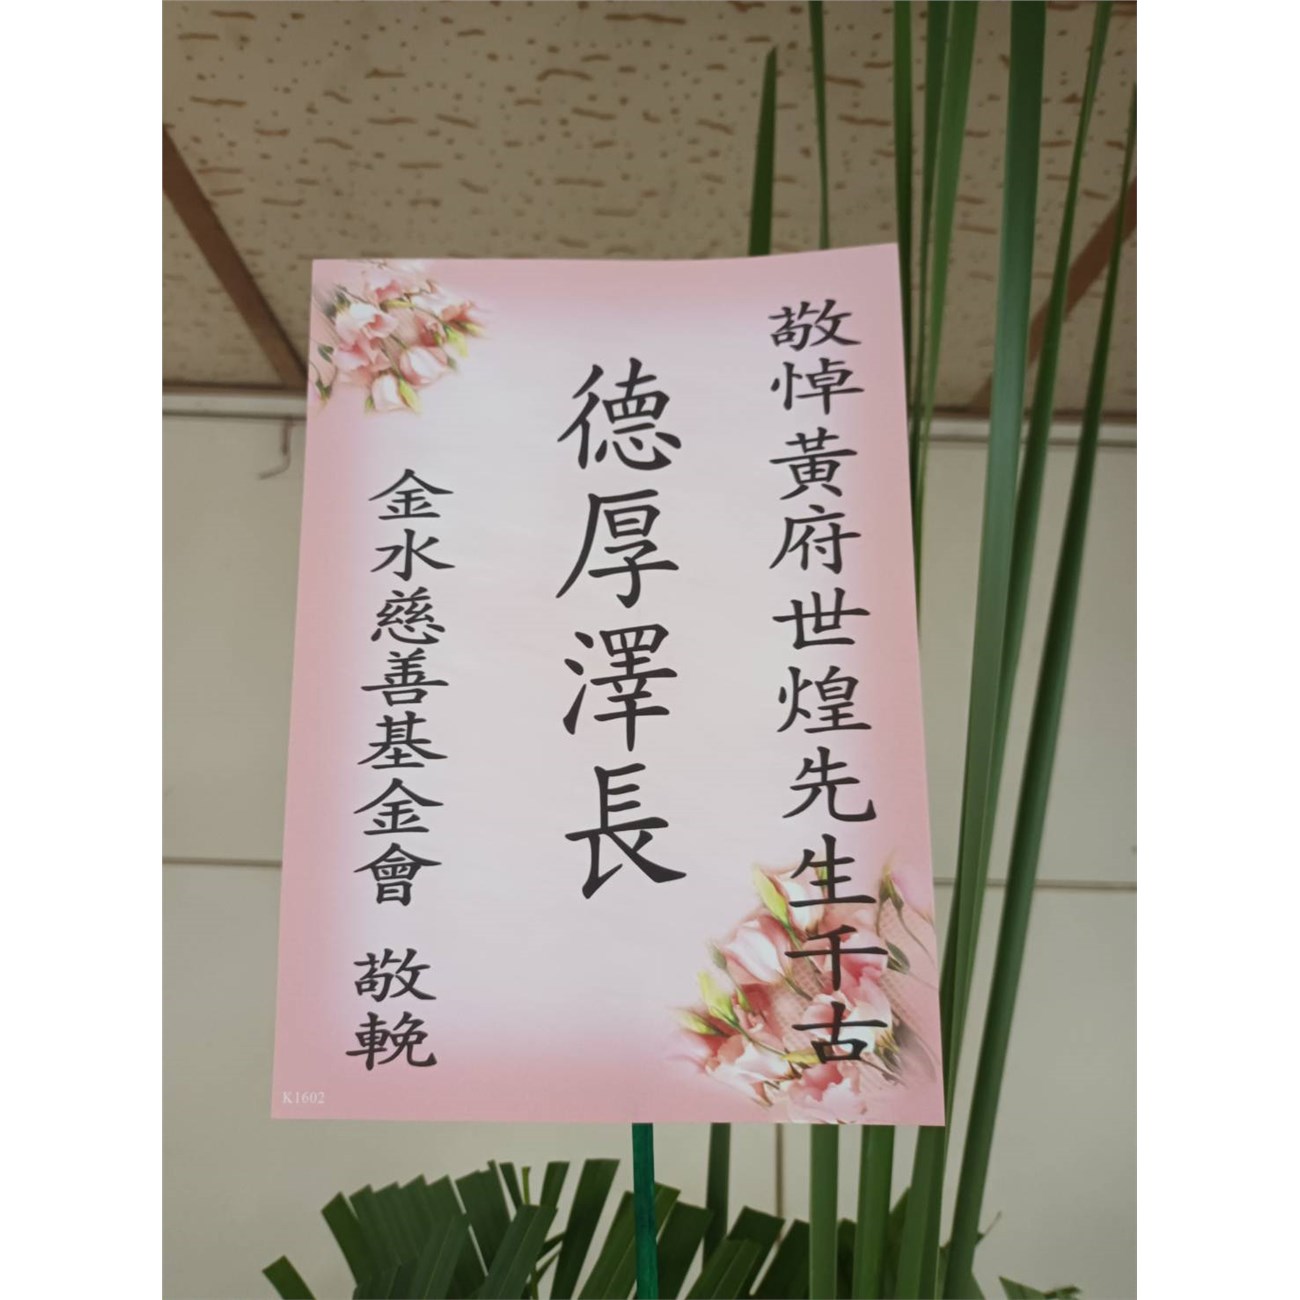 敬悼黃府世煌先生千古
德厚澤長
金水慈善基金會 敬輓
K1602